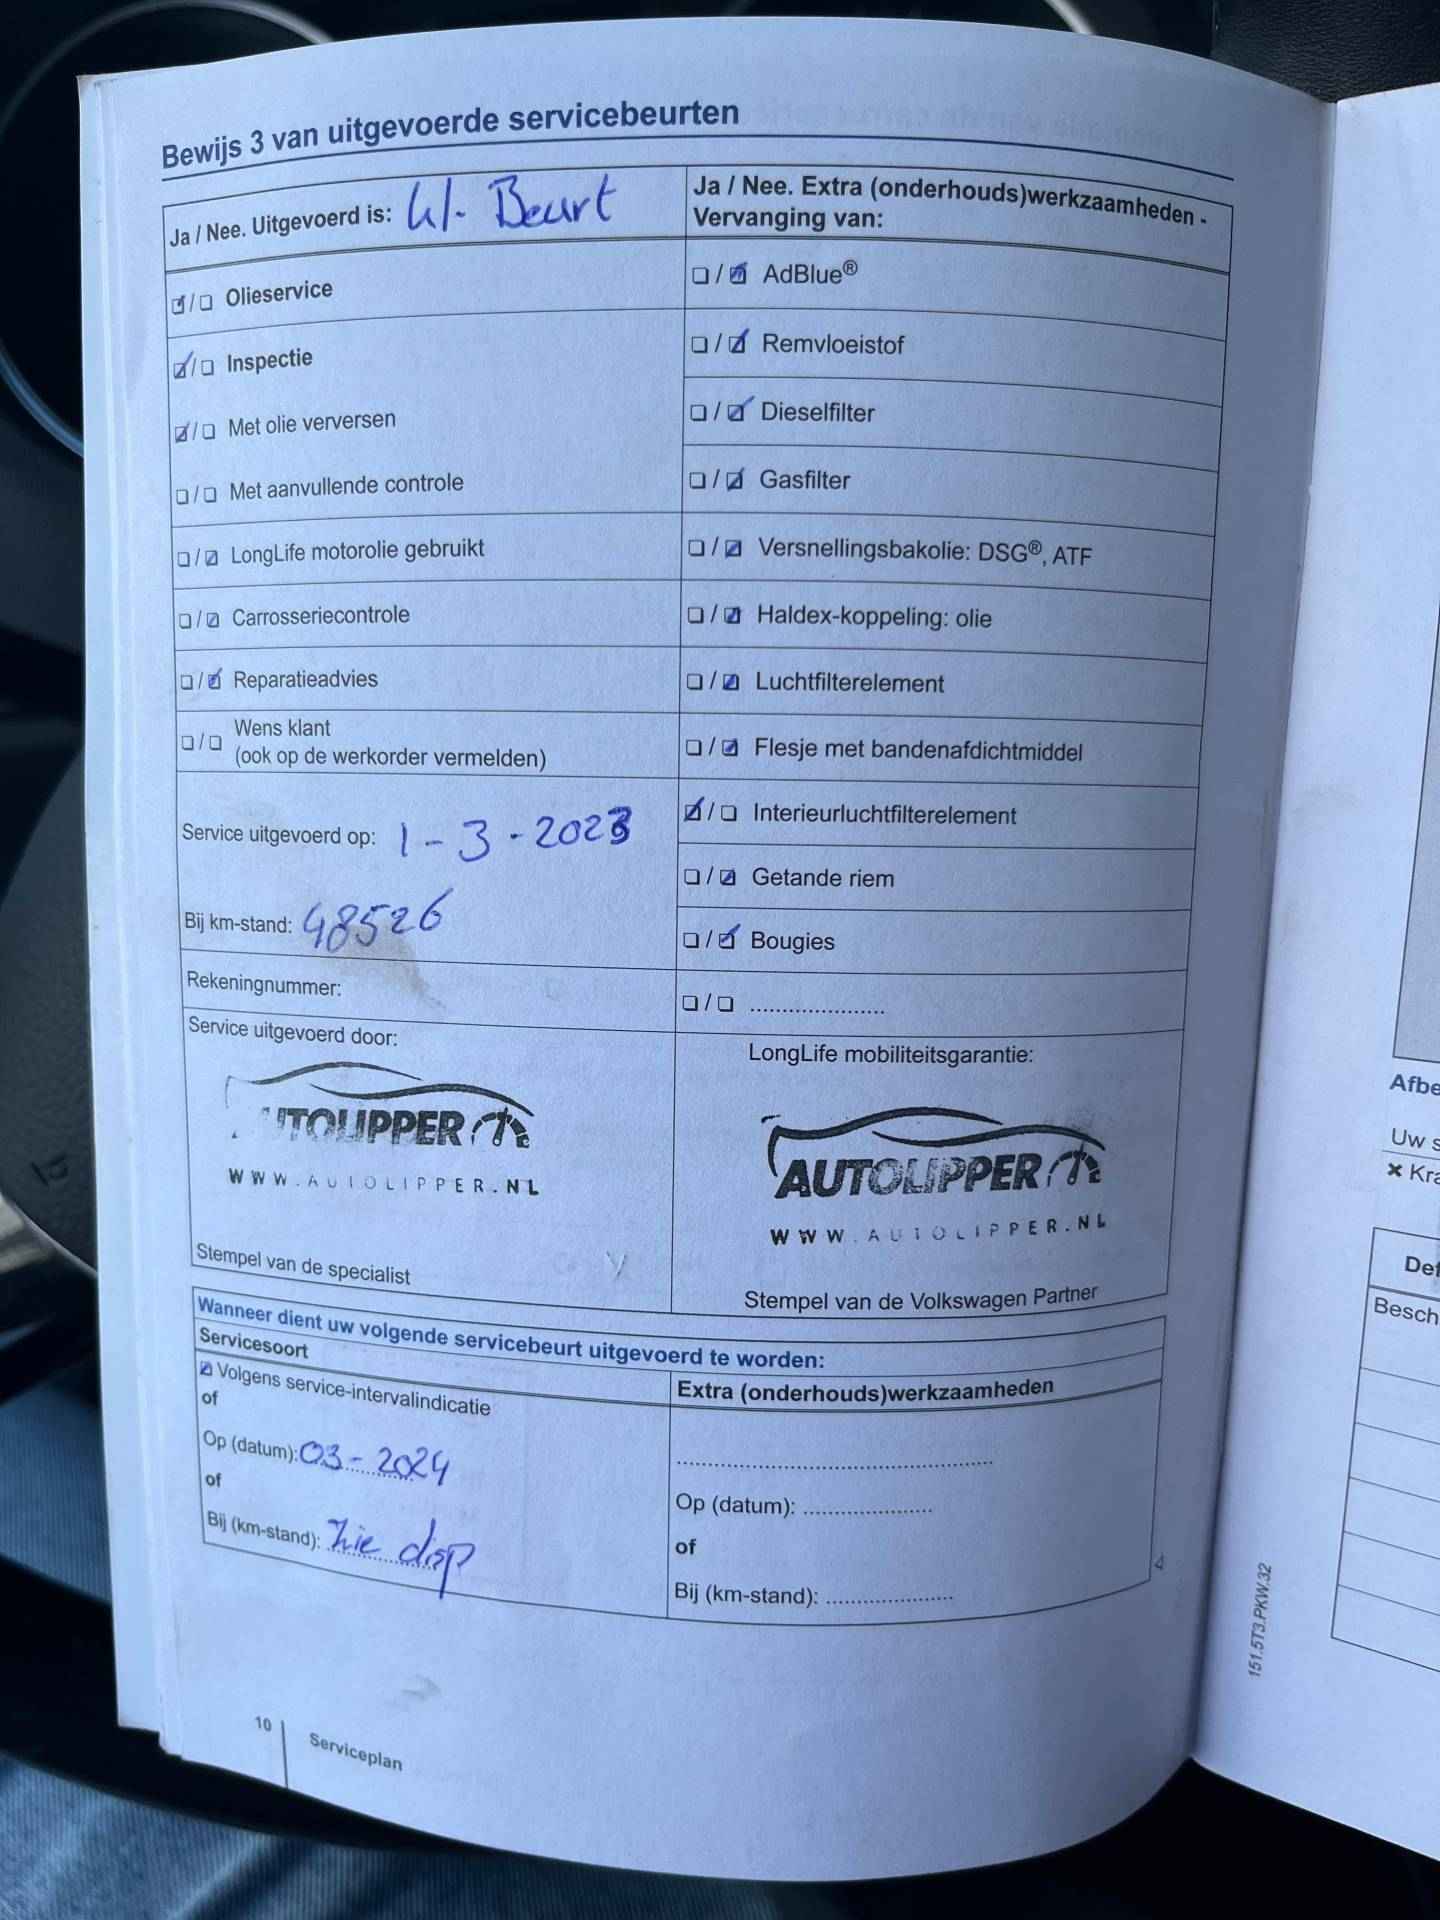 Bewijs 3 van uitgevoerde servicebeurten
Ja / Nee. Uitgevoerd is: kl. Beurt
Olieservice
Inspectie
Met olie verversen
Met aanvullende controle
LongLife motorolie gebruikt
Carrosseriecontrole
Reparatieadvies
Wens klant
(ook op de werkorder vermelden)
Service uitgevoerd op: 1-3-2023
Bij km-stand: 48526
Rekeningnummer:
Service uitgevoerd door:
AUTOLIPPER
WWW.AUTOLIPPER.NL
Stempel van de specialist
Ja / Nee. Extra (onderhouds)werkzaamheden -
Vervanging van:
AdBlue®
Remvloeistof
Dieselfilter
Gasfilter
Versnellingsbakolie: DSG®, ATF
Haldex-koppeling: olie
Luchtfilterelement
Flesje met bandenafdichtmiddel
Interieurluchtfilterelement
Getande riem
Bougies
.....................
LongLife mobiliteitsgarantie:
AUTOLIPPER
WWW.AUTOLIPPER.NL
Stempel van de Volkswagen Partner
Wanneer dient uw volgende servicebeurt uitgevoerd te worden:
Servicesoort
Volgens service-intervalindicatie
of
Op (datum): 03-2024
of
Bij (km-stand): zie disp
Extra (onderhouds)werkzaamheden
Op (datum): ....................
of
Bij (km-stand): ....................
4
10
Serviceplan
151.5T3.PKW.32
Afbe
Uw s
× Kra
Def
Besch